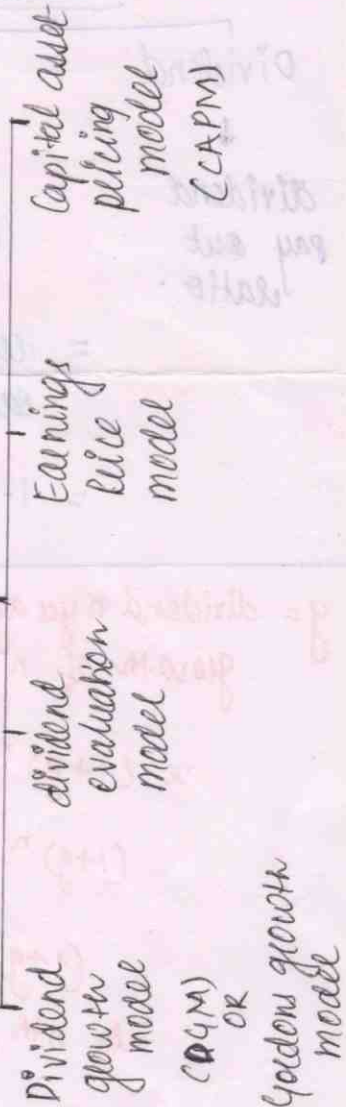 Dividend
growth
model
(DGM)
OR
Gordons growth
model
dividend
evaluation
model
Earnings
Price
model
Capital asset
pricing
model
(CAPM)